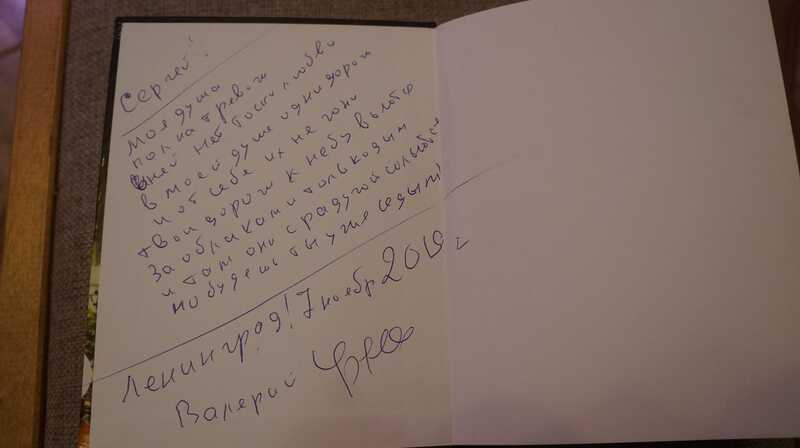 Сергей!
Моя душа
полна тревог
в ней нет тоски любви
в моей душе одни дороги
и от себя их не гони
твои дороги к небу
За облаками только дым
и там они с радугой
но будешь ты уже седым!
Ленинград! 7 ноябр 2019 г
Валерий